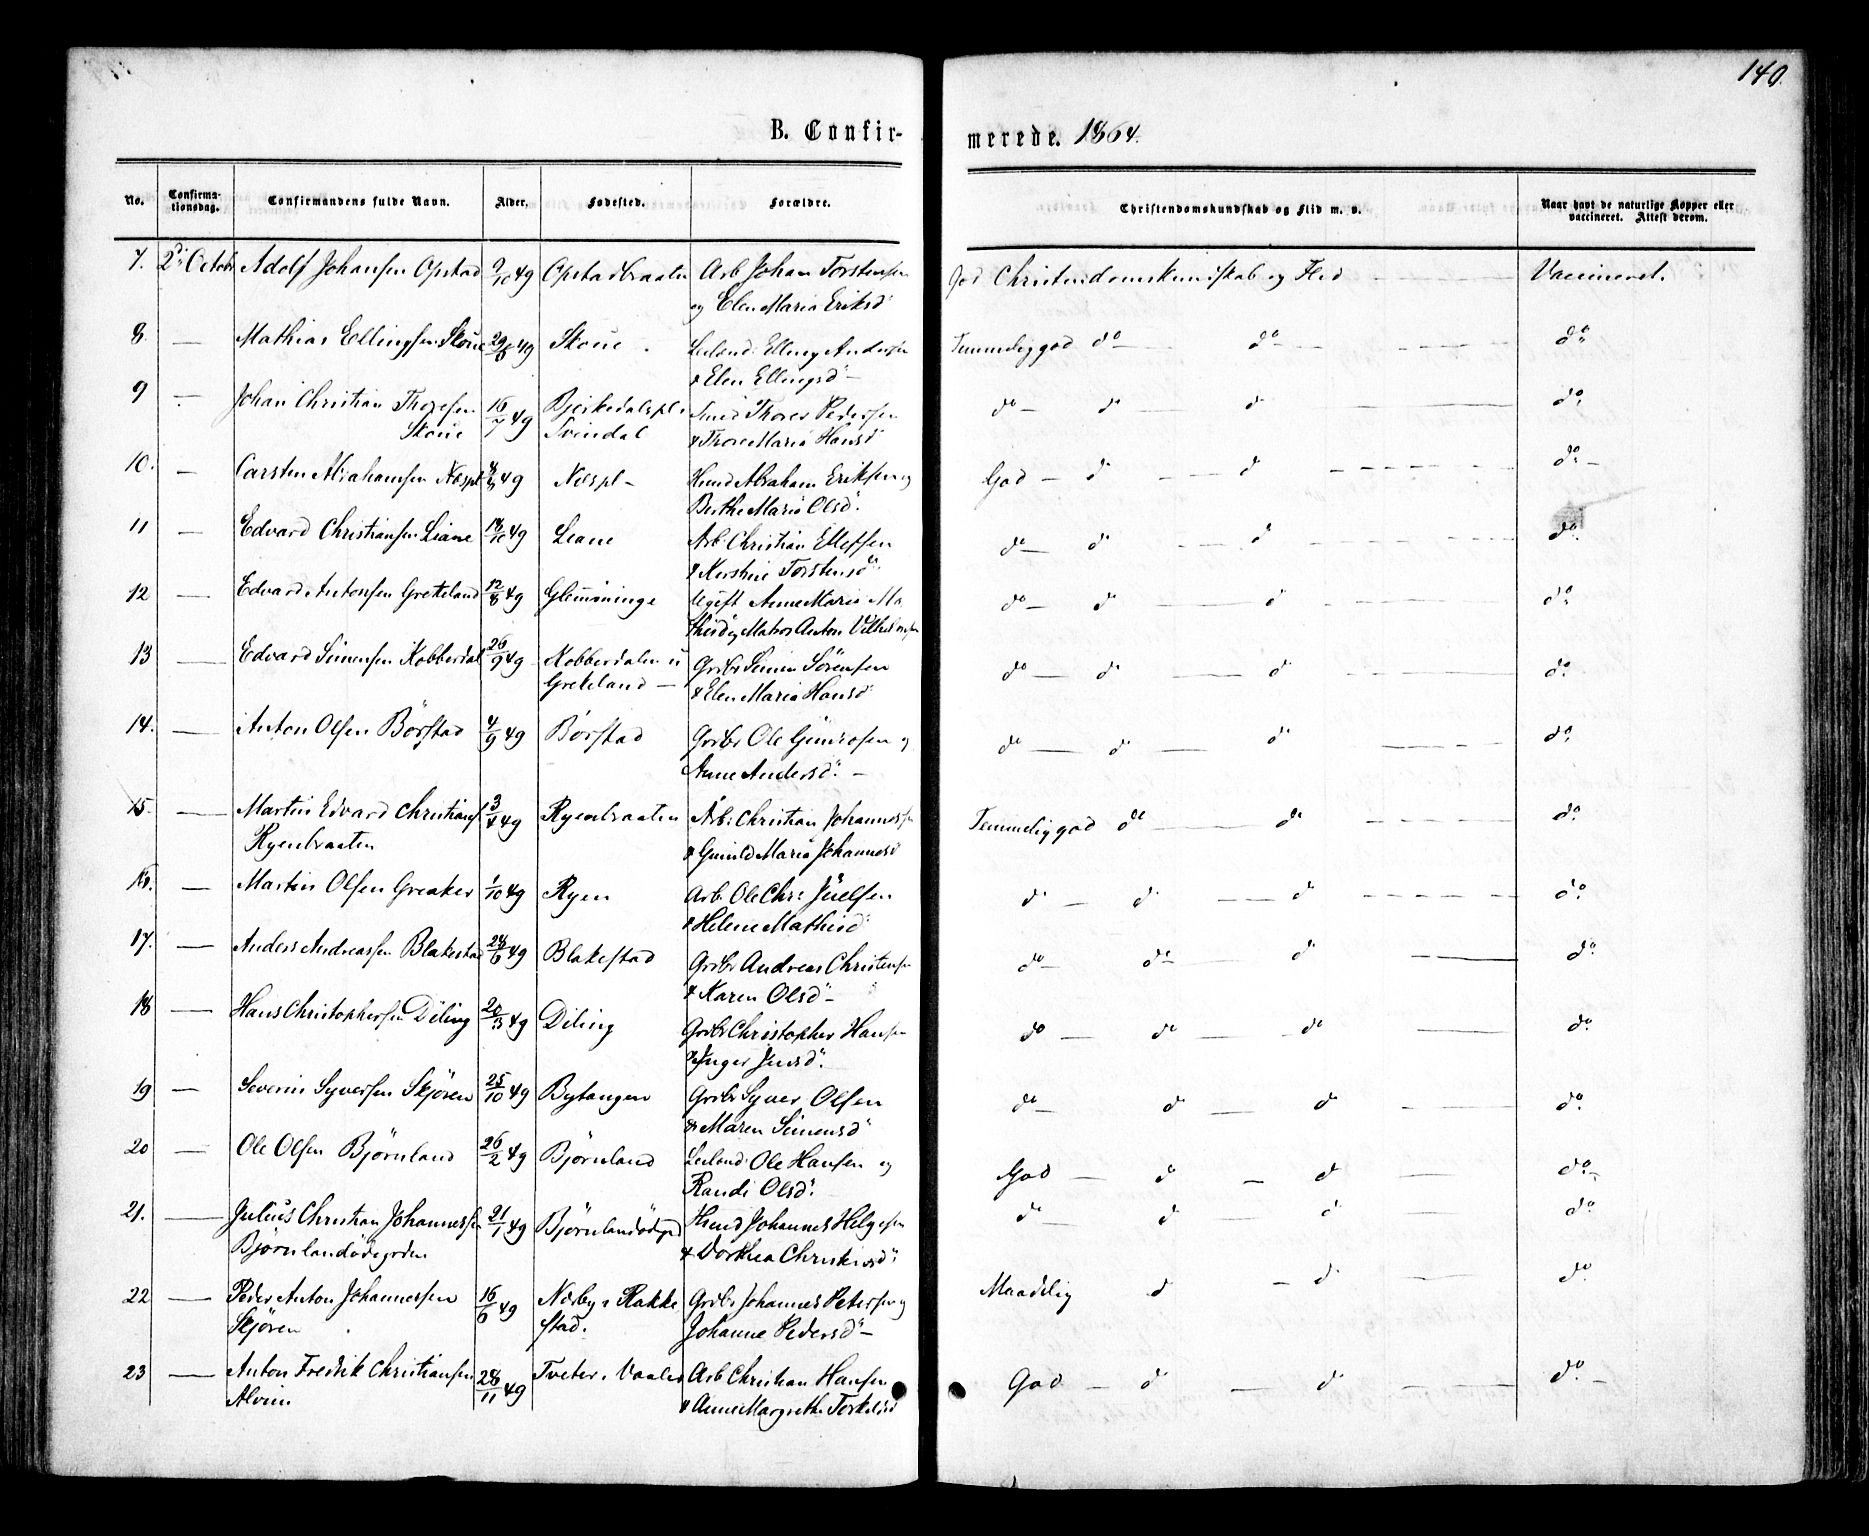 140.
B. Confirmerede. 1864.
No. Confirmationsdag. Confirmandens fulde Navn. Alder. Fødested. Forældre. Christendomskundskab og Flid m. v. Naar havt de naturlige Kopper eller vaccineret. Attest derom.
7. 2d. Octobr Adolf Johansen Opstad 9/10 49 Opstadbraaten Arb Johan Torstensen God Christendomskundskab og Flid — Vaccineret.
og Elen Maria Eriksd.
8. — Mathias Ellingsen Skoue 29/8 49 Skoue. Leilend: Elling Andersen Temmelig god do — do — do
& Elen Ellingsd —
9 — Johan Christian Thoresen 16/7 49 Bjerkedalspl. Smed Thores Pedersen do — do do — do
Skoue Svindal & Thore Maria Hansd
10. — Carsten Abrahamsen Næspl 49 Næspl — Huusmd Abraham Eriksen og God — do — do — do —
Berthe Maria Olsd.
11 — Edvard Christiansen Liane 18/10 49 Leane Arb. Christian Ellefsen do — do — do — do
& Kirstine Torstensd
12 — Edvard Antonsen Grekeland 12/8 49 Glemminge Ugift Anne Maria Ma- do — do — do — do
thisd og Matros Anton Vilhelmsen
13 — Edvard Simensen Kobberdal 26/9 49 Kobberdalen u Grdbr Simen Sørensen do — do — do — do
Grekeland — & Elen Maria Hansd
14. — Anton Olsen Börstad 4/9 49 Börstad Grdbr Ole Gundrosen og do — do — do — do
Anne Andersd. —
15. — Martin Edvard Christians 3/4 49 Ryenbraaten Arb: Christian Johannessen Temmelig god do — do — do
Ryenbraaten & Gunild Maria Johannesd
16. — Martin Olsen Greaker 1/10 49 Ryen Arb. Ole Chr: Juelsen do — do — do — do
& Helene Mathisd
17. — Anders Andreassen Blakestad 28/6 49 Blakestad Grdbr Andreas Christensen do — do — do — do
& Karen Olsd —
18 — Hans Christophersen Diling 20/3 49 Diling Grdbr Christopher Hansen do — do — do — do
& Inger Jensd.
19 — Severin Syversen Skjören 25/10 49 Bytangen Grdbr Syver Olsen do — do — do — do
& Maren Simensd
20 — Ole Olsen Björnland 26/2 49 Björnland Leilend: Ole Hansen og God — do — do — do —
Randi Olsd.
21. — Julius Christian Johannessen 21/1 49 Björnlandödegrd Husmd Johannes Helgesen do — do — do — do
Björnlandödegrden & Dorthea Christiansd.
22 — Peder Anton Johannessen 16/6 49 Nærby i Rakke Grdbr Johannes Petersen og Maadelig do — do — do
Skjören stad. Johanne Pedersd —
23 — Anton Fredrik Christiansen 28/11 49 Tveter i Vaaler Arb Christian Hansen God — do — do — do —
Alvim & Anne Margrethe Torkelsd